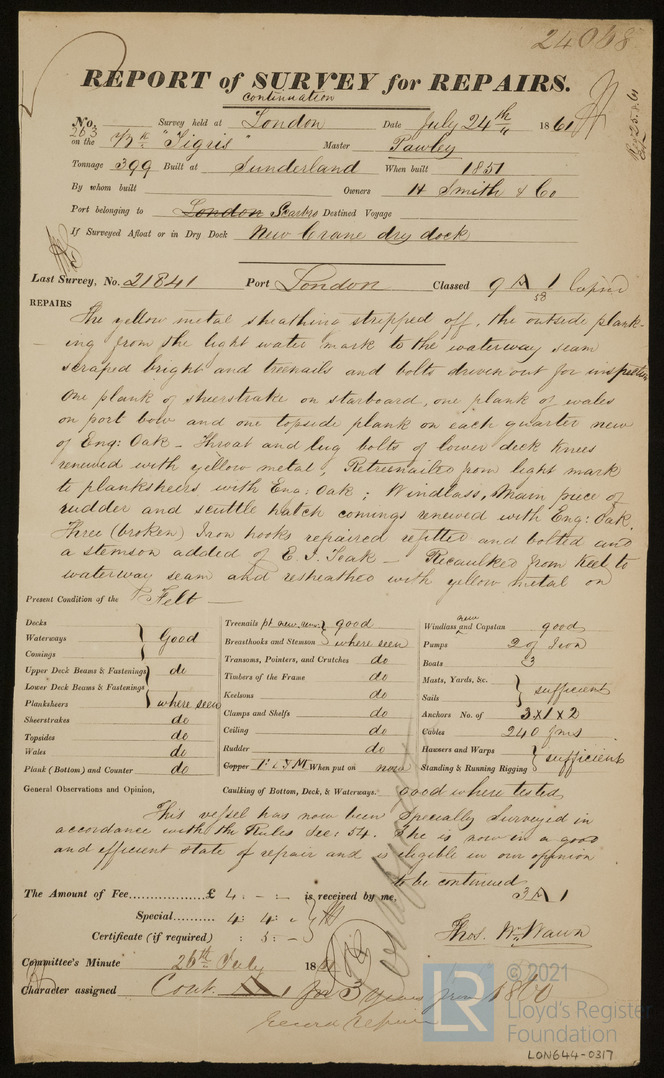 24068
REPORT of SURVEY for REPAIRS.
continuation
No. 263 Survey held at London Date July 24th 1861
on the Bk "Tigris" Master Pawley
Tonnage 399 Built at Sunderland When built 1851
By whom built Owners H Smith & Co
Port belonging to London Scarbro Destined Voyage
If Surveyed Afloat or in Dry Dock New Crane dry dock
Last Survey, No. 21841 Port London Classed 9 A 1
58
REPAIRS
The yellow metal sheathing stripped off, the outside plank-
ing from the light water mark to the waterway seam
scraped bright and treenails and bolts driven out for inspection
One plank of sheerstrake on starboard, one plank of wales
on port bow and one topside plank on each quarter new
of Eng: Oak - Throat and lug bolts of lower deck knees
renewed with yellow metal, Retreenailed from light mark
to planksheers with Eng: Oak; Windlass, Main piece of
rudder and scuttle hatch comings renewed with Eng: Oak.
Three (broken) Iron hooks repaired refitted and bolted and
a stemson added of E. I. Teak - Recaulked from keel to
waterway seam and resheathed with yellow metal on
Felt
Present Condition of the
Decks
Waterways Good
Comings
Upper Deck Beams & Fastenings do
Lower Deck Beams & Fastenings
Planksheers where seen
Sheerstrakes do
Topsides do
Wales do
Plank (Bottom) and Counter do
Treenails pt new good
Breasthooks and Stemson where seen
Transoms, Pointers, and Crutches do
Timbers of the Frame do
Keelsons do
Clamps and Shelfs do
Ceiling do
Rudder do
Copper F & YM When put on now
Windlass new and Capstan good
Pumps 2 of Iron
Boats 3
Masts, Yards, &c.
Sails sufficient
Anchors No. of 3 x 1 x 2
Cables 240 fms
Hawsers and Warps
Standing & Running Rigging sufficient
General Observations and Opinion, Caulking of Bottom, Deck, & Waterways. good where tested
This vessel has now been Specially Surveyed in
accordance with the Rules Sec: 54. She is now in a good
and efficient state of repair and is eligible in our opinion
to be continued
3 A 1
The Amount of Fee £ 4 : - : - is received by me,
Special 4 : 4 : -
Certificate (if required) : 5 : -
Thos. Wm Wawn
Committee's Minute 26th July 1861
Character assigned Cont. A1 for 3 Years from 1860
© 2021
Lloyd's Register
Foundation
LR
LON644-0317